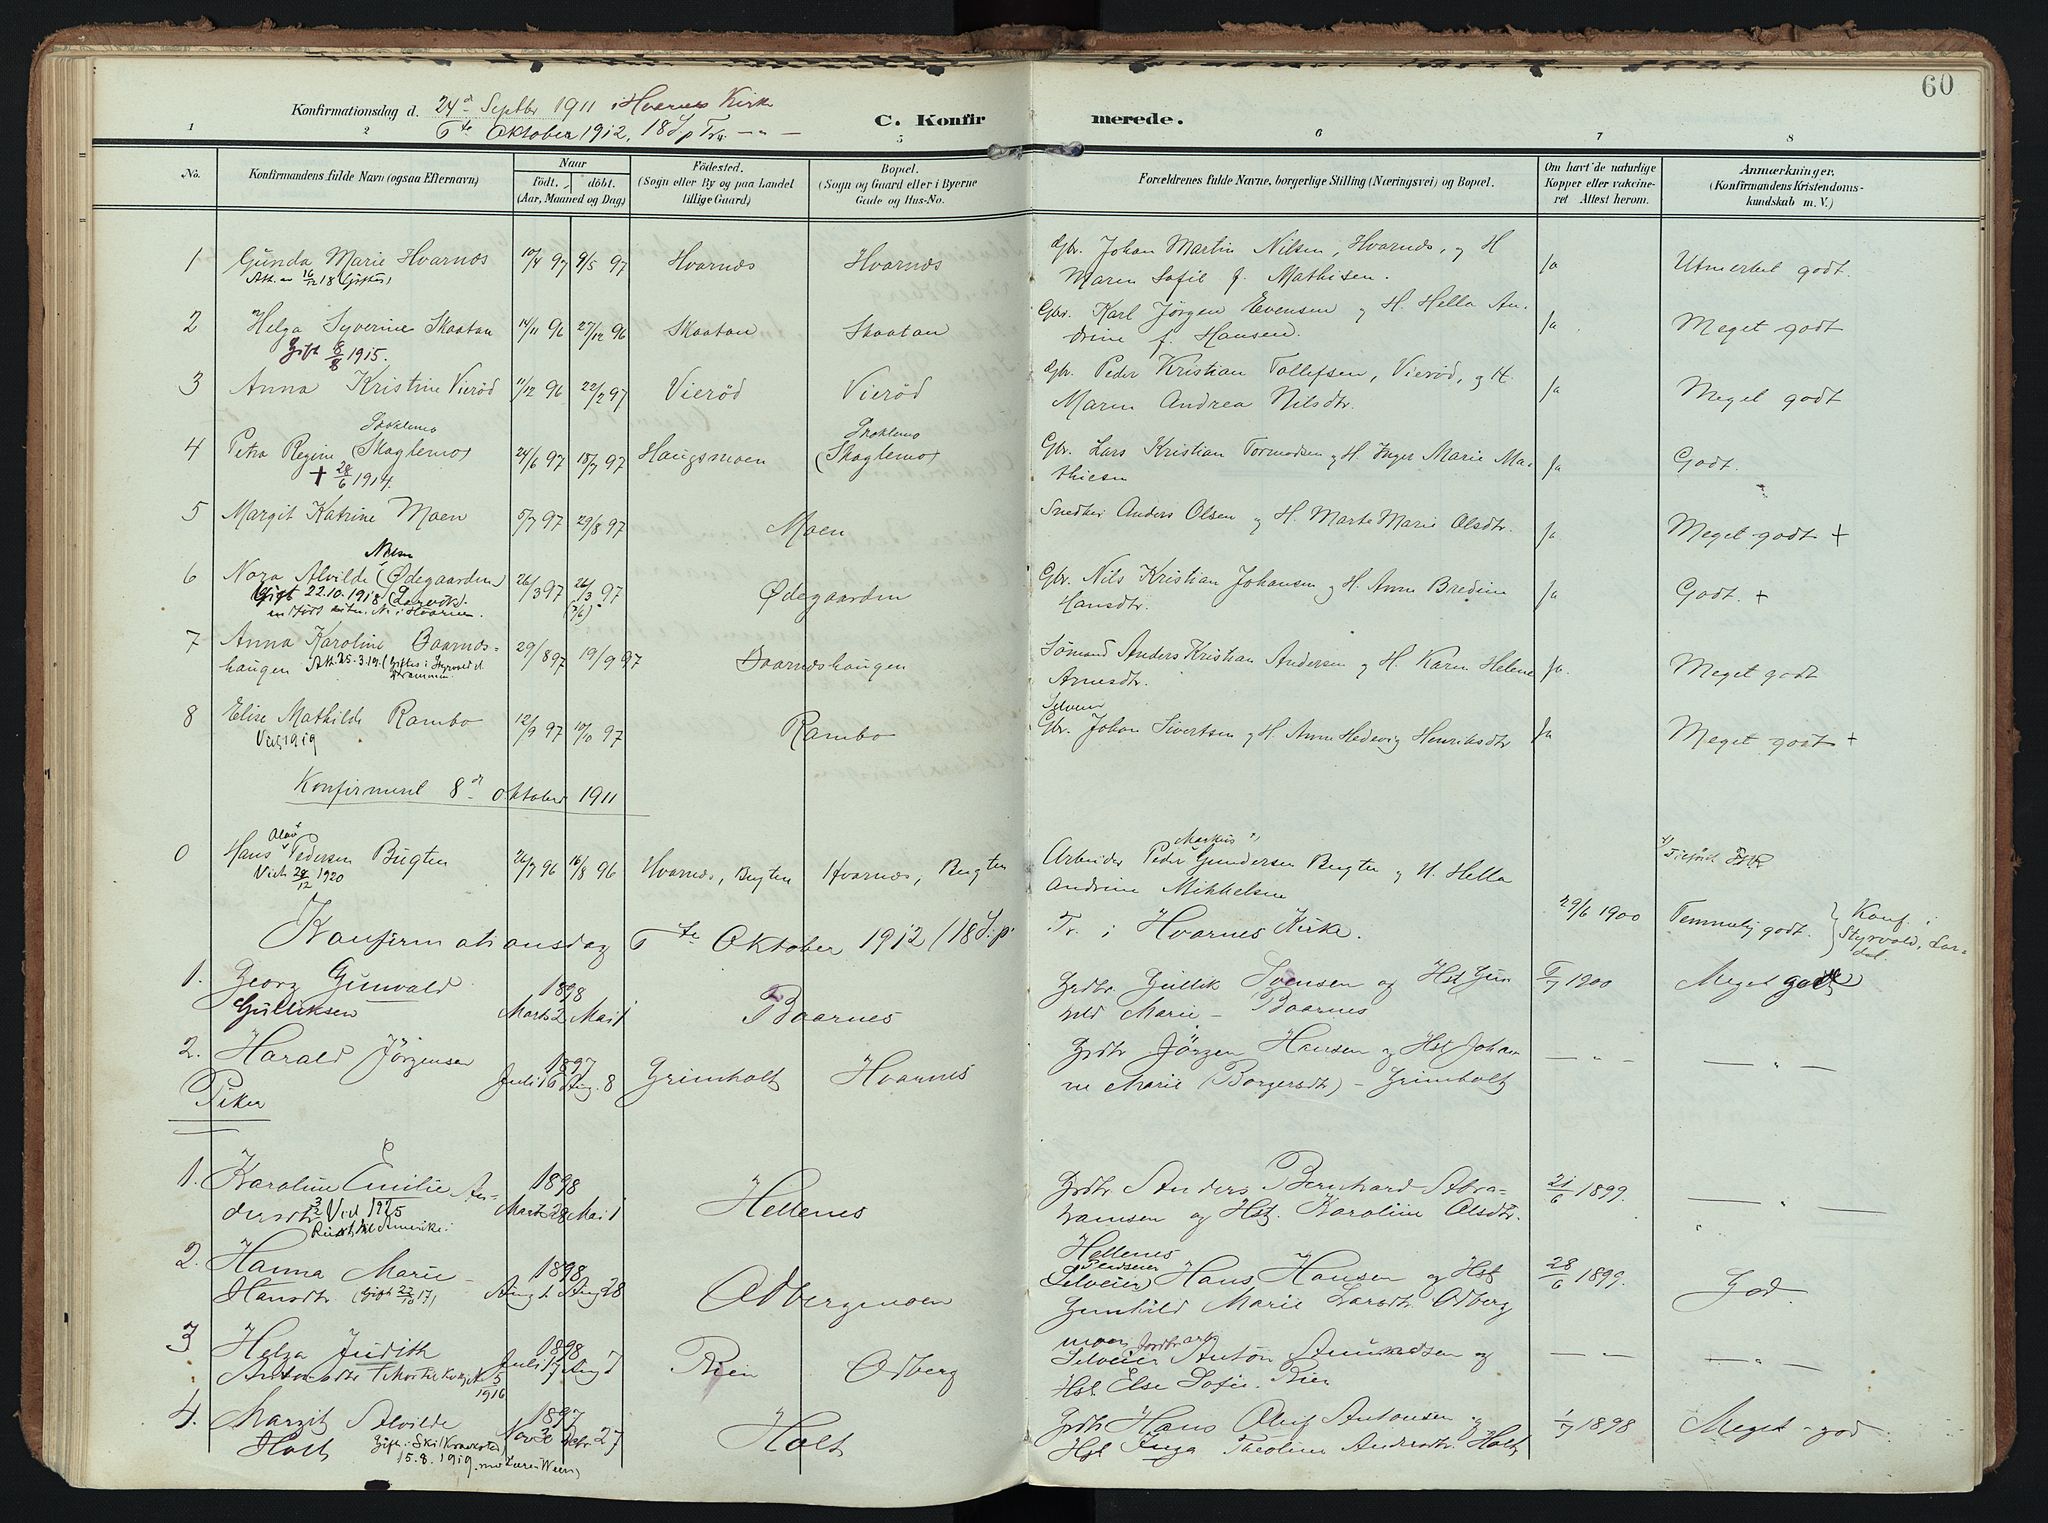 60
Konfirmationsdag d. 24d Septbr 1911 i Hvarnes Kirke
6te Oktober 1912, 18 S. p. Tr. — „ —
C. Konfirmerede.
1 2 5 6 7 8
No. Konfirmandens fulde Navn (ogsaa Efternavn) Naar Födt, döbt. (Aar, Maaned og Dag) Födested. (Sogn eller By og paa Landet tillige Gaard) Bopæl. (Sogn og Gaard eller i Byerne Gade og Hus-No. Forældrenes fulde Navne, borgerlige Stilling (Næringsvei) og Bopæl. Om havt de naturlige Kopper eller vakcineret. Attest herom. Anmærkninger. (Konfirmandens Kristendomskundskab m. V.)
1 Gunda Marie Hvarnes 10/4 97 9/5 97 Hvarnes Hvarnes Gbr. Johan Martin Nilsen, Hvarnes, og H Ja Utmerket godt.
Att. 16/12 18 (Giftes) Maren Sofie f. Mathisen.
2 Helga Syverine Skaatan 14/11 96 27/12 96 Skaatan Skaatan Gbr. Karl Jørgen Evensen og H. Hella An- Ja Meget godt
Gift 8/8 1915. drine f. Hansen.
3 Anna Kristine Vierød 11/12 96 22/2 97 Vierød Vierød Gbr. Peder Kristian Tollefsen, Vierød, og H. Ja Meget godt
Maren Andrea Nilsdtr.
4 Petra Regine (Skaglemo) 24/6 97 18/7 97 Haugsmoen (Skaglemo) Gbr. Lars Kristian Tormodsen og H. Inger Marie Ma- Ja Godt.
+ 28/6 1914. thiesen
5 Margit Katrine Moen 5/7 97 29/8 97 Moen Snedker Anders Olsen og H. Marte Marie Olsdtr. Ja Meget godt +
Nilsen
6 Nora Alvilde (Ødegaarden) 26/3 97 26/3 97 Ødegaarden Gbr. Nils Kristian Johansen og H. Anne Bredine Ja Godt. +
Gift 22.10.1918 (Larvik) Hansdtr.
7 Anna Karoline Baarnes- 29/8 97 19/9 97 Baarneshaugen Sømand Anders Kristian Andersen og H. Karen Helene Ja Meget godt
haugen Att. 25.3.19. (Giftes i Drammen. Arnesdtr.
Selveier
8 Elise Mathilde Rambo 12/9 97 10/10 97 Rambo Gbr. Johan Sivertsen og H. Anne Hedevig Henriksdtr Ja Meget godt +
Viet 1919
Konfirmeret 8d oktober 1911
Olav Markus Tilføiet
0 Hans Pedersen Bugten 26/7 96 16/8 96 Hvarnes, Bugten Hvarnes, Bugten Arbeider Peder Gundersen Bugten og H. Hella
Viet 28/12 1920 Andrine Mikkelsen 29/6 1900 Temmelig godt. Konf. i Styrvold, Lardal.
Konfirmationsdag 6te Oktober 1912 (18 S. p. Tr. i Hvarnes Kirke.
1. Georg Gunvald 1898 Baarnes Grdbr. Gullik Svensen og Hst Gun 1900 Meget godt
Gulliksen Marts 2 Mai 1 hild Marie – Baarnes
2. Harald Jörgensen 1897 Grimholt Hvarnes Grdbr Jörgen Hansen og Hst Johan — „ — — „ —
Juli 16 Aug. 8 ne Marie (Borgersdtr) – Grimholt
Piker
1. Karoline Emilie An- 1898 Hellenes Grdbr Anders Bernhard Abra- 21/6 1899. — „ —
dersdtr Viet 1925 Marts 28 Mai 1 hamsen og Hst. Karoline Olsdtr.
Reist til Amerika Hellenes
2. Hanna Marie 1898 Odbergmoen Selveier Hans Hansen og Hst 28/6 1899. God.
Hansdtr (Gift 22/10 17) Aug 1 Aug 28 Gunhild Marie Larsdtr Odberg
moen
3 Helga Judith 1898 Rien Odberg Selveier Anton Amundsen og — „ — — „ —
Antonsdtr 1916 Juli 17 Aug 7 Hst Else Sofie. Rien
4. Margit Alvilde 1897 Holt Grdbr Hans Oluf Antonsen og 1/7 1898 Meget – god
Holt Gift i Ski (Kraakstad) 15.8.1919. Nov 30 27 Hst Inga Theoline Andersdtr. Holt